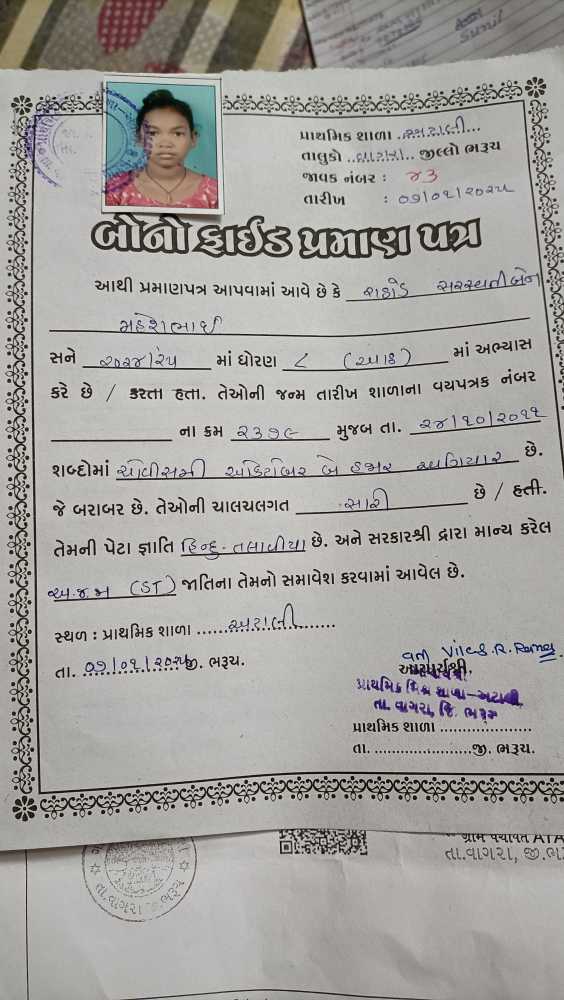 Sunil
પ્રાથમિક શાળા ..અટાલી...
તાલુકો ..વાગરા.. જીલ્લો ભરૂચ
જાવક નંબર : ૪૩
તારીખ : ૦૭/૦૧/૨૦૨૫
બોનોફાઈડ પ્રમાણ પત્ર
આથી પ્રમાણપત્ર આપવામાં આવે છે કે રાઠોડ સરસ્વતીબેન
મહેશભાઈ
સને ૨૦૨૪/૨૫ માં ધોરણ ૮ (આઠ) માં અભ્યાસ
કરે છે / કરતા હતા. તેઓની જન્મ તારીખ શાળાના વયપત્રક નંબર
ના ક્રમ ૨૩૭૯ મુજબ તા. ૨૪/૧૦/૨૦૧૧
શબ્દોમાં ચોવીસમી ઓક્ટોબર બે હજાર અગિયાર છે.
જે બરાબર છે. તેઓની ચાલચલગત સારી છે / હતી.
તેમની પેટા જ્ઞાતિ હિન્દુ-તલાવીયા છે. અને સરકારશ્રી દ્વારા માન્ય કરેલ
અ.જ.જા (ST) જાતિના તેમનો સમાવેશ કરવામાં આવેલ છે.
સ્થળ : પ્રાથમિક શાળા ......અટાલી......
તા. ૦૭/૦૧/૨૦૨૫જી. ભરૂચ.
વતી
આચાર્યશ્રી.
પ્રાથમિક મિશ્ર શાળા-અટાલી
તા. વાગરા, જિ. ભરૂચ
પ્રાથમિક શાળા ....................
તા. ......................જી. ભરૂચ.
ગ્રામ પંચાયત ATA
તા.વાગરા, જી.
તા.વાગરા જી.ભરૂચ